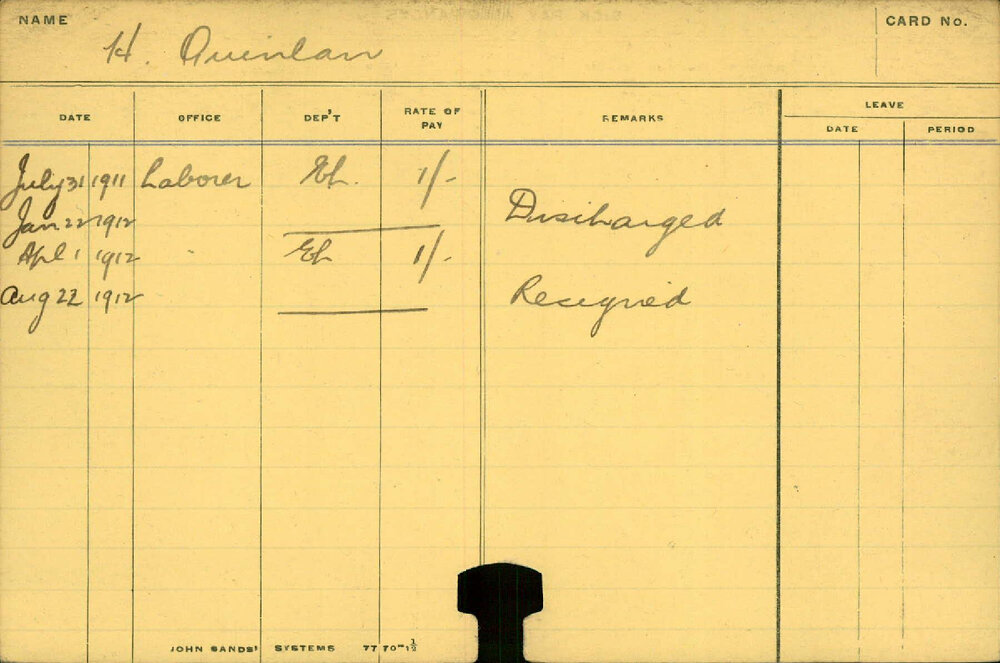 NAME
H. Quinlan
CARD No.
DATE OFFICE DEP'T RATE OF PAY REMARKS LEAVE
DATE PERIOD
July 31 1911 Laborer Eh. 1/-
Jan 22 1912 Discharged
Apl 1 1912 Eh 1/-
Aug 22 1912 Resigned
JOHN SANDS' SYSTEMS